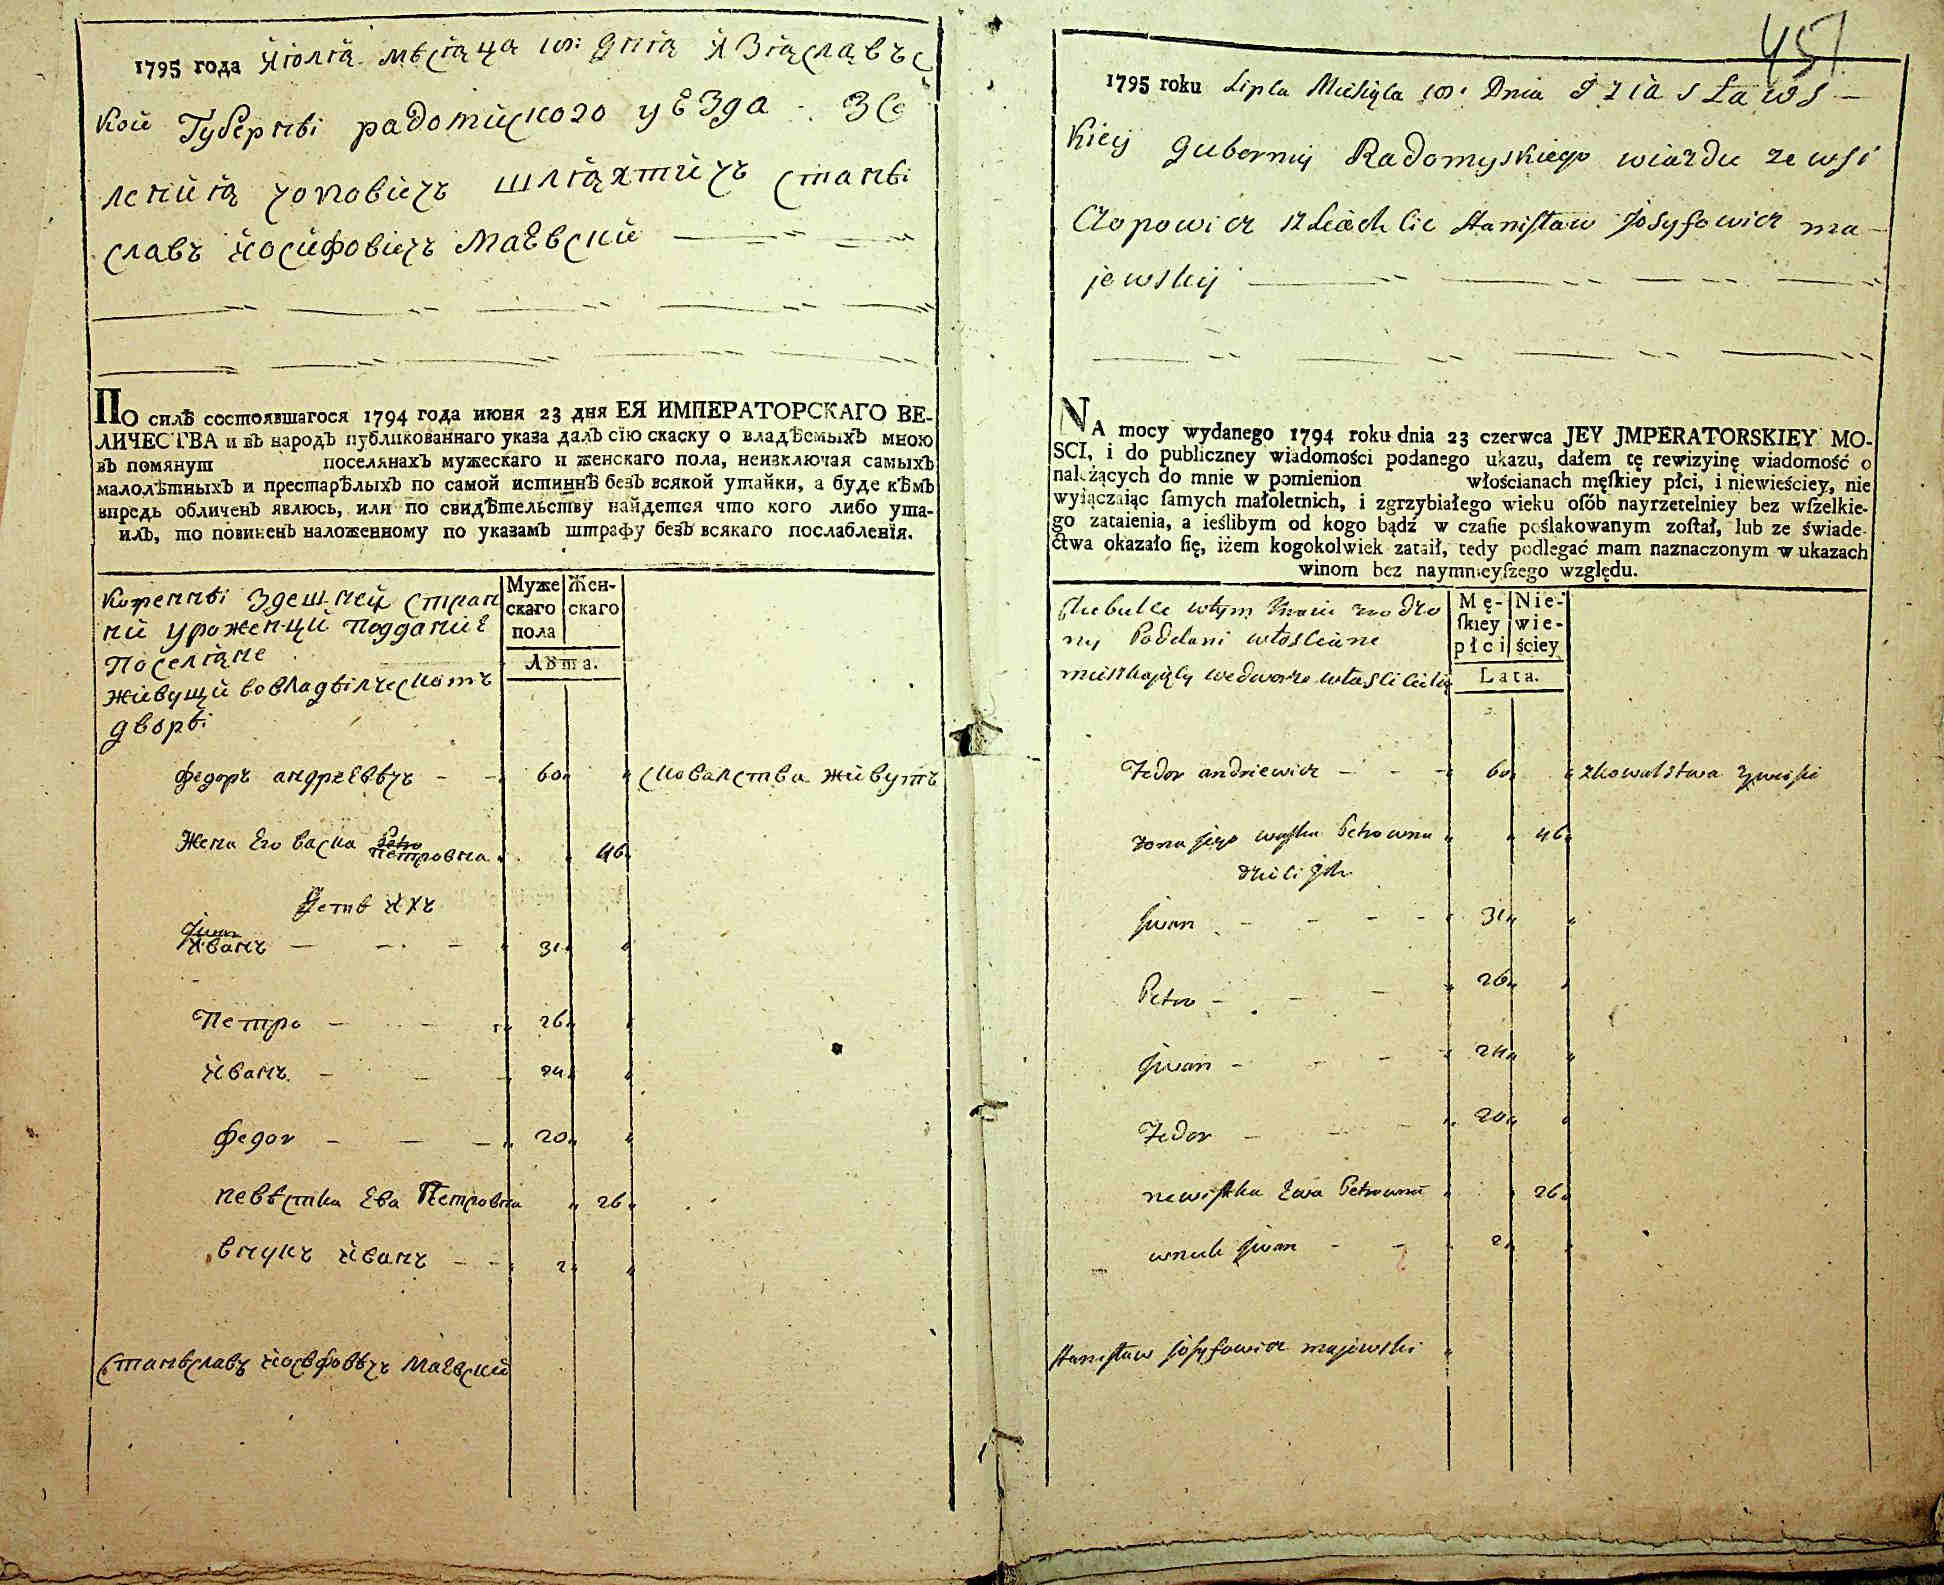 1795 года Июлїя мѣсяца 10: дня Изяславъс
кой Губернѣі радомиского уезда зсе
ления Чоповичъ шляхтичъ станѣі
славъ Иосифовичъ Маевски
ПО силѣ состоявшагося 1794 года июня 23 дня ЕЯ ИМПЕРАТОРСКАГО ВЕ-
ЛИЧЕСТВА и въ народъ публикованнаго указа далъ сїю скаску о владѣемыхъ мною
въ помянут поселянахъ мужескаго и женскаго пола, неизключая самыхъ
малолѣтныхъ и престарѣлыхъ по самой истиннѣ безъ всякой утайки, а буде кѣмъ
впредь обличенъ явлюсь, или по свидѣтельству найдется что кого либо ута-
илъ, то повиненъ наложенному по указамъ штрафу безъ всякаго послабленїя.
Кореннѣі здешней стран
ни уроженци подданиє
Поселяне
живущи вовладѣлческомъ
дворѣі
Муже
скаго
пола
Жен-
скаго
Лѣта.
федоръ андрєевѣчъ 60 сковалства живутъ
Жена Его васка Петровна 46
Дети ихъ
Иванъ 31
Петро 26
Иванъ 24
федор 20
невѣстка Ева Петровна 26
внукъ Иванъ 2
Станѣславъ Иосѣфовѣчъ Маевский
451
1795 roku Lipca Miesiąca 10: Dnia Iziasławs-
kiey gubernij Radomyskiego wiazdu ze wsi
Czopowicz szliachcic stanisław Josyfowicz ma-
jewskij
NA mocy wydanego 1794 roku dnia 23 czerwca JEY JMPERATORSKIEY MO-
SCI, i do publiczney wiadomości podanego ukazu, dałem tę rewizyinę wiadomość o
należących do mnie w pomienion włościanach męſkiey płci, i niewieściey, nie
wyłączaiąc ſamych małoletnich, i zgrzybiałego wieku oſób nayrzetelniey bez wſzelkie-
go zataienia, a ieślibym od kogo bądź w czaſie poślakowanym zoſtał, lub ze świade-
ctwa okazało ſię, iżem kogokolwiek zataił, tedy podlegać mam naznaczonym w ukazach
winom bez naymnieyſzego względu.
wtym kraiu zrodzo
ny Poddani włoscianie
mieszkaiący wedworze własciciela
Mę-
ſkiey
płci
Nie-
wie-
ściey
Lata.
Fedor andriewicz 60 zkowalstwa
zona jego waska Petrowna 46
dzieci ich
Jwan 31
Petro 26
Jwan 24
Fedor 20
newistka Ewa Petrowna 26
wnuk Jwan 2
stanisław josyfowicz majewski